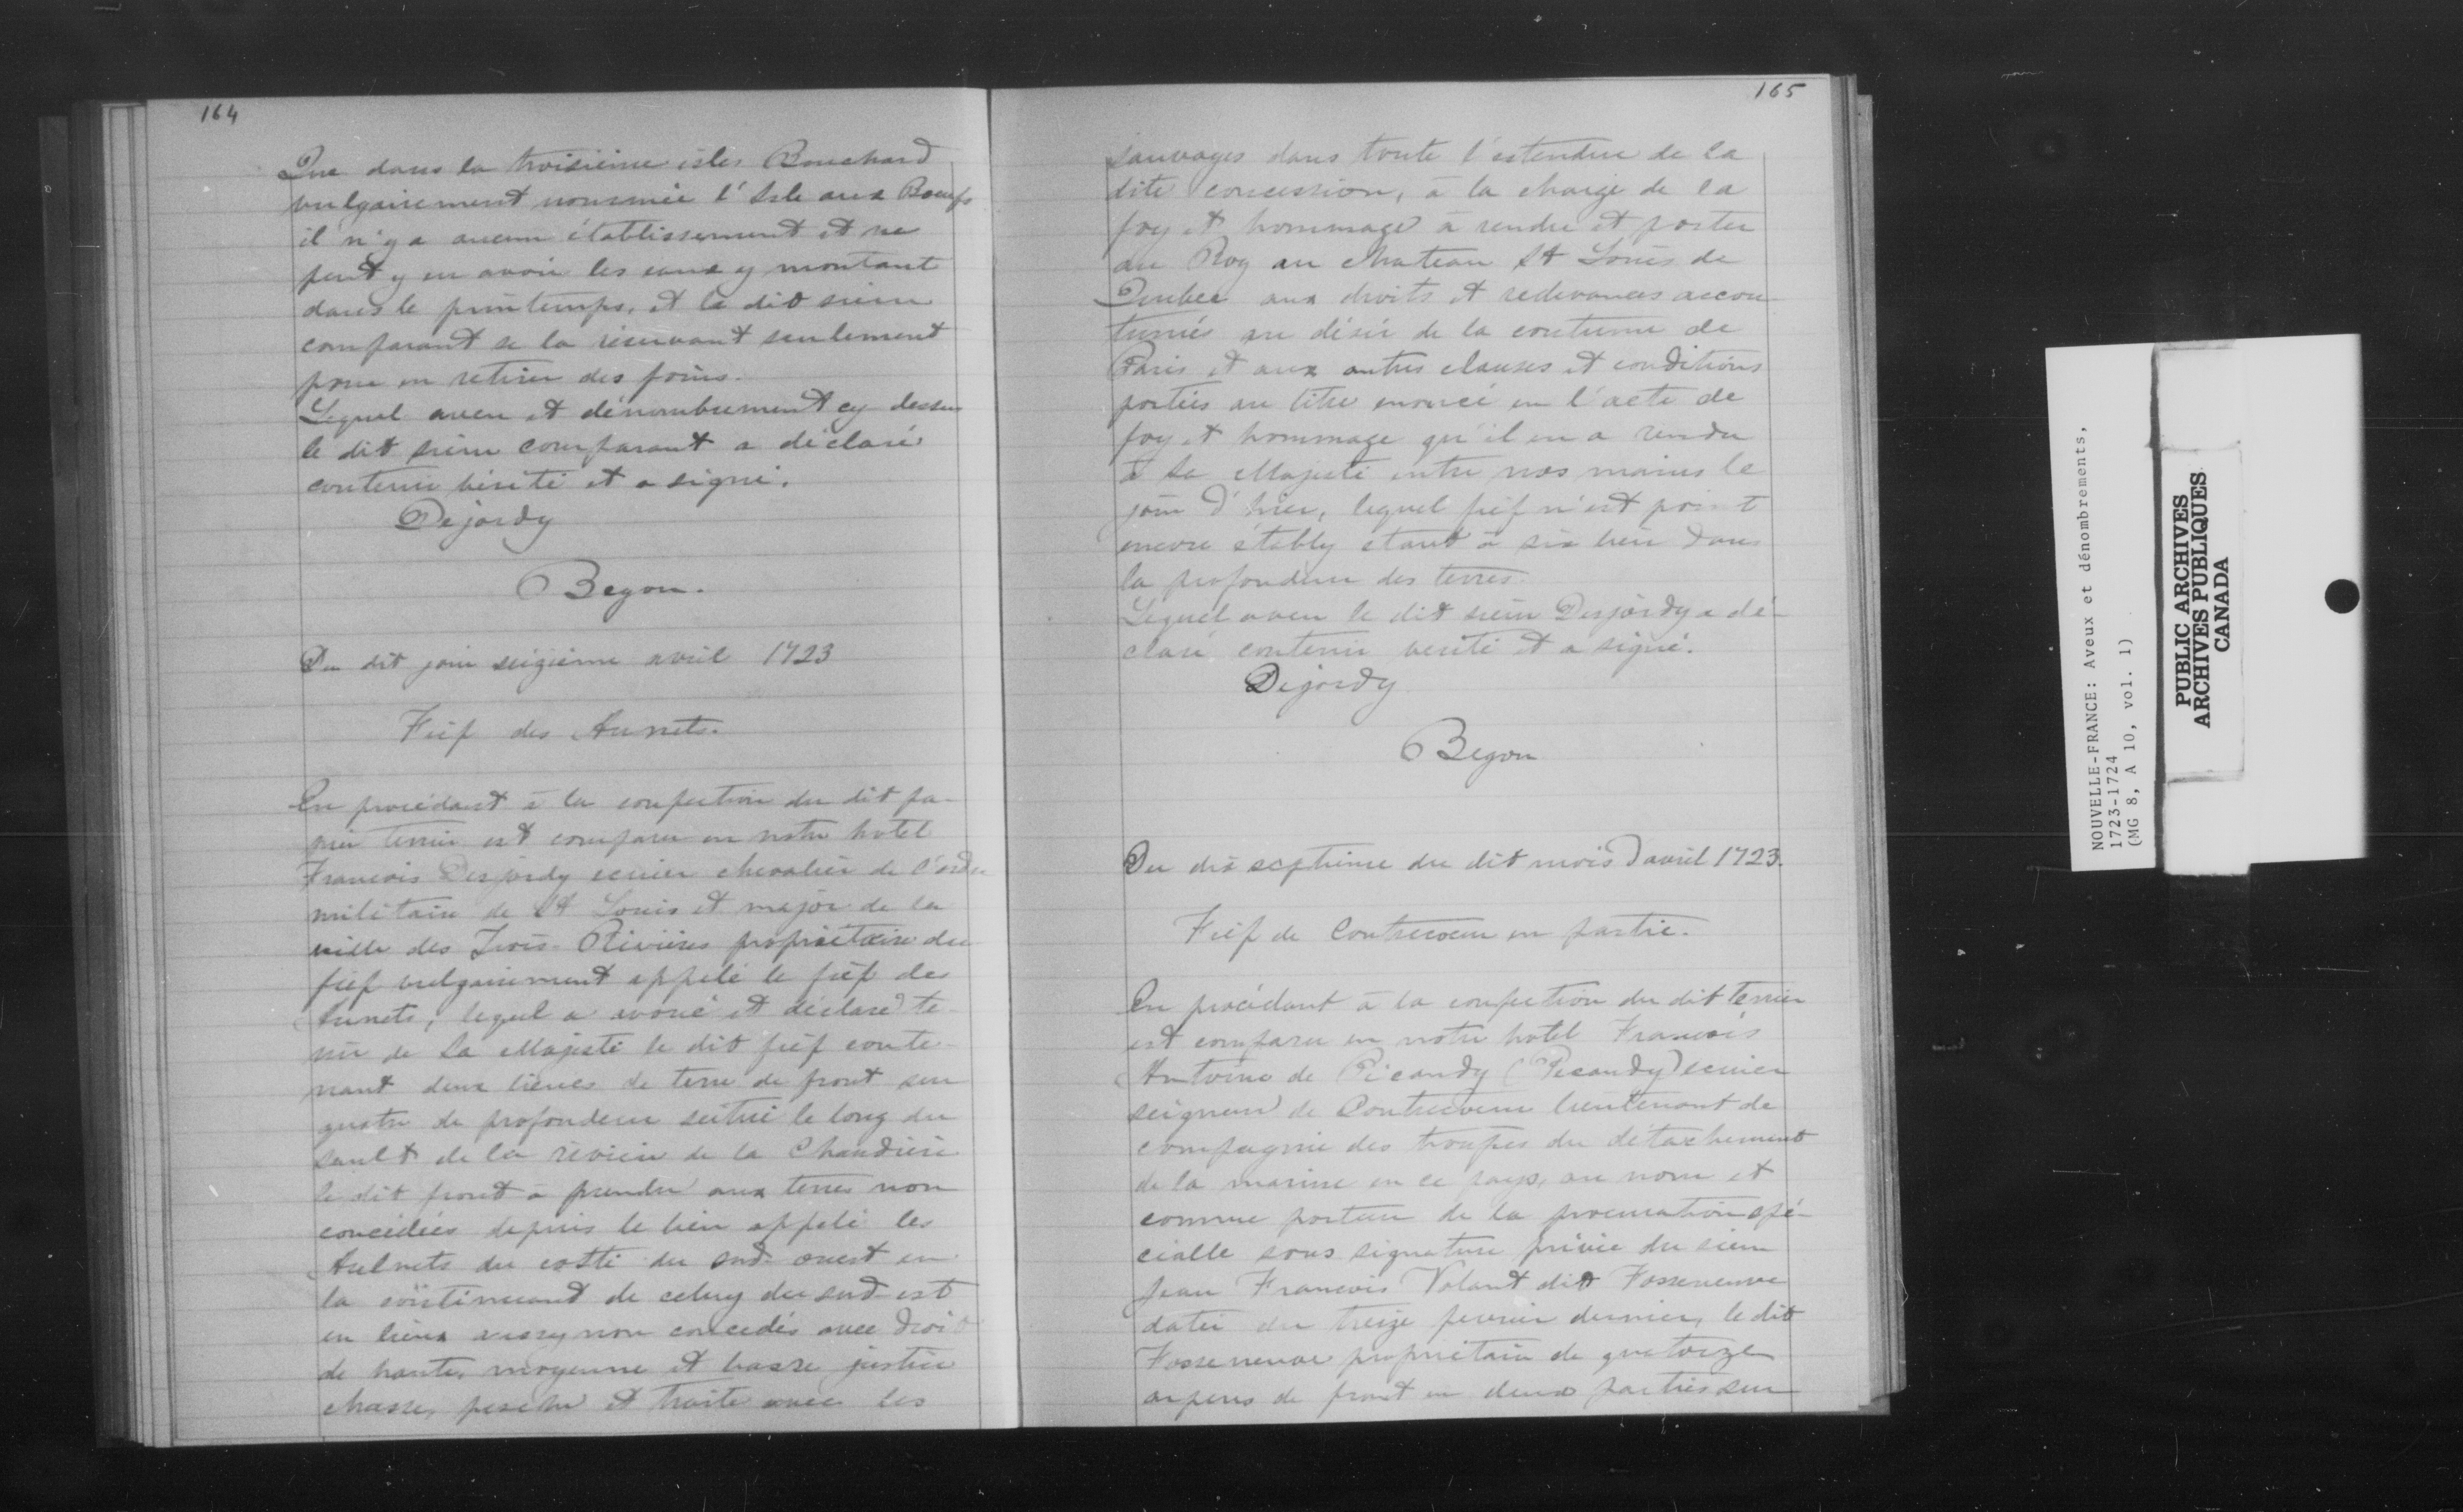 164
Que dans la troisième isles Bouchard
vulgairement nommée l'Isle aux Boeufs
il n'y a aucun établissement et ne
peut y en avoir les eaux y montant
dans le printemps, et le dit sieur
comparant se la réservant seulement
pour en retirer des foins.
Lequel aveu et dénombrement cy dessus
le dit sieur comparant a déclaré
contenir vérité et a signé.
Dejordy
Begon.
Du dit jour seizième avril 1723
Fief des Aunets.
En procédant à la confection du dit pa-
pier terrier est comparu en notre hotel
Francois Desjordy ecuier chevalier de l'ordre
militaire de St Louis et major de la
ville des Trois-Rivières propriétaire du
fief vulgairement appelé le fief des
Aunets, lequel a avoué et déclaré te-
nir de Sa Majesté le dit fief conte-
nant deux lieues de terre de front sur
quatre de profondeur scitué le long du
sault de la rivière de la Chaudière
le dit front à prendre aux terres non
concédées depuis le lieu appelé les
Aulnets du costé du sud-ouest en
la continuant de celuy du sud-est
en lieux aussy non concedés avec droit
de haute, moyenne et basse justice
chasse, pesche et traite avec les
165
sauvages dans toute l'estendue de la
dite concession, à la charge de la
foy et hommage à rendre et porter
au Roy au chateau St Louis de
Quebec aux droits et redevances accou-
tumés au désir de la coutume de
Paris et aux autres clauses et conditions
portées au titre enoncé en l'acte de
foy et hommage qu'il en a rendu
à Sa Majesté entre nos mains le
jour d'hier, lequel fief n'est point
encore étably étant à six lieu dans
la profondeur des terres.
Lequel aveu le dit sieur Desjordy a dé-
claré contenir verité et a signé.
Dejordy
Begon
Du dix septième du dit mois d'avril 1723.
Fief de Contrecoeur en partie.
En procédant à la confection du dit terrier
est comparu en notre hotel Francois
Antoine de Pécaudy (Pecaudy) ecuier
seigneur de Contrecoeur lieutenant de
compagnie des troupes du détachement
de la marine en ce pays, au nom et
comme porteur de la procuration spé-
cialle sous signature privée du sieur
Jean Francois Volant dit Fosseneuve
datée du treize fevrier dernier, le dit
Fosseneuve propriétaire de quatorze
arpens de front en deux parties sur
NOUVELLE-FRANCE: Aveux et dénombrements,
1723-1724
(MG 8, A 10, vol. 1)
PUBLIC ARCHIVES
ARCHIVES PUBLIQUES
CANADA